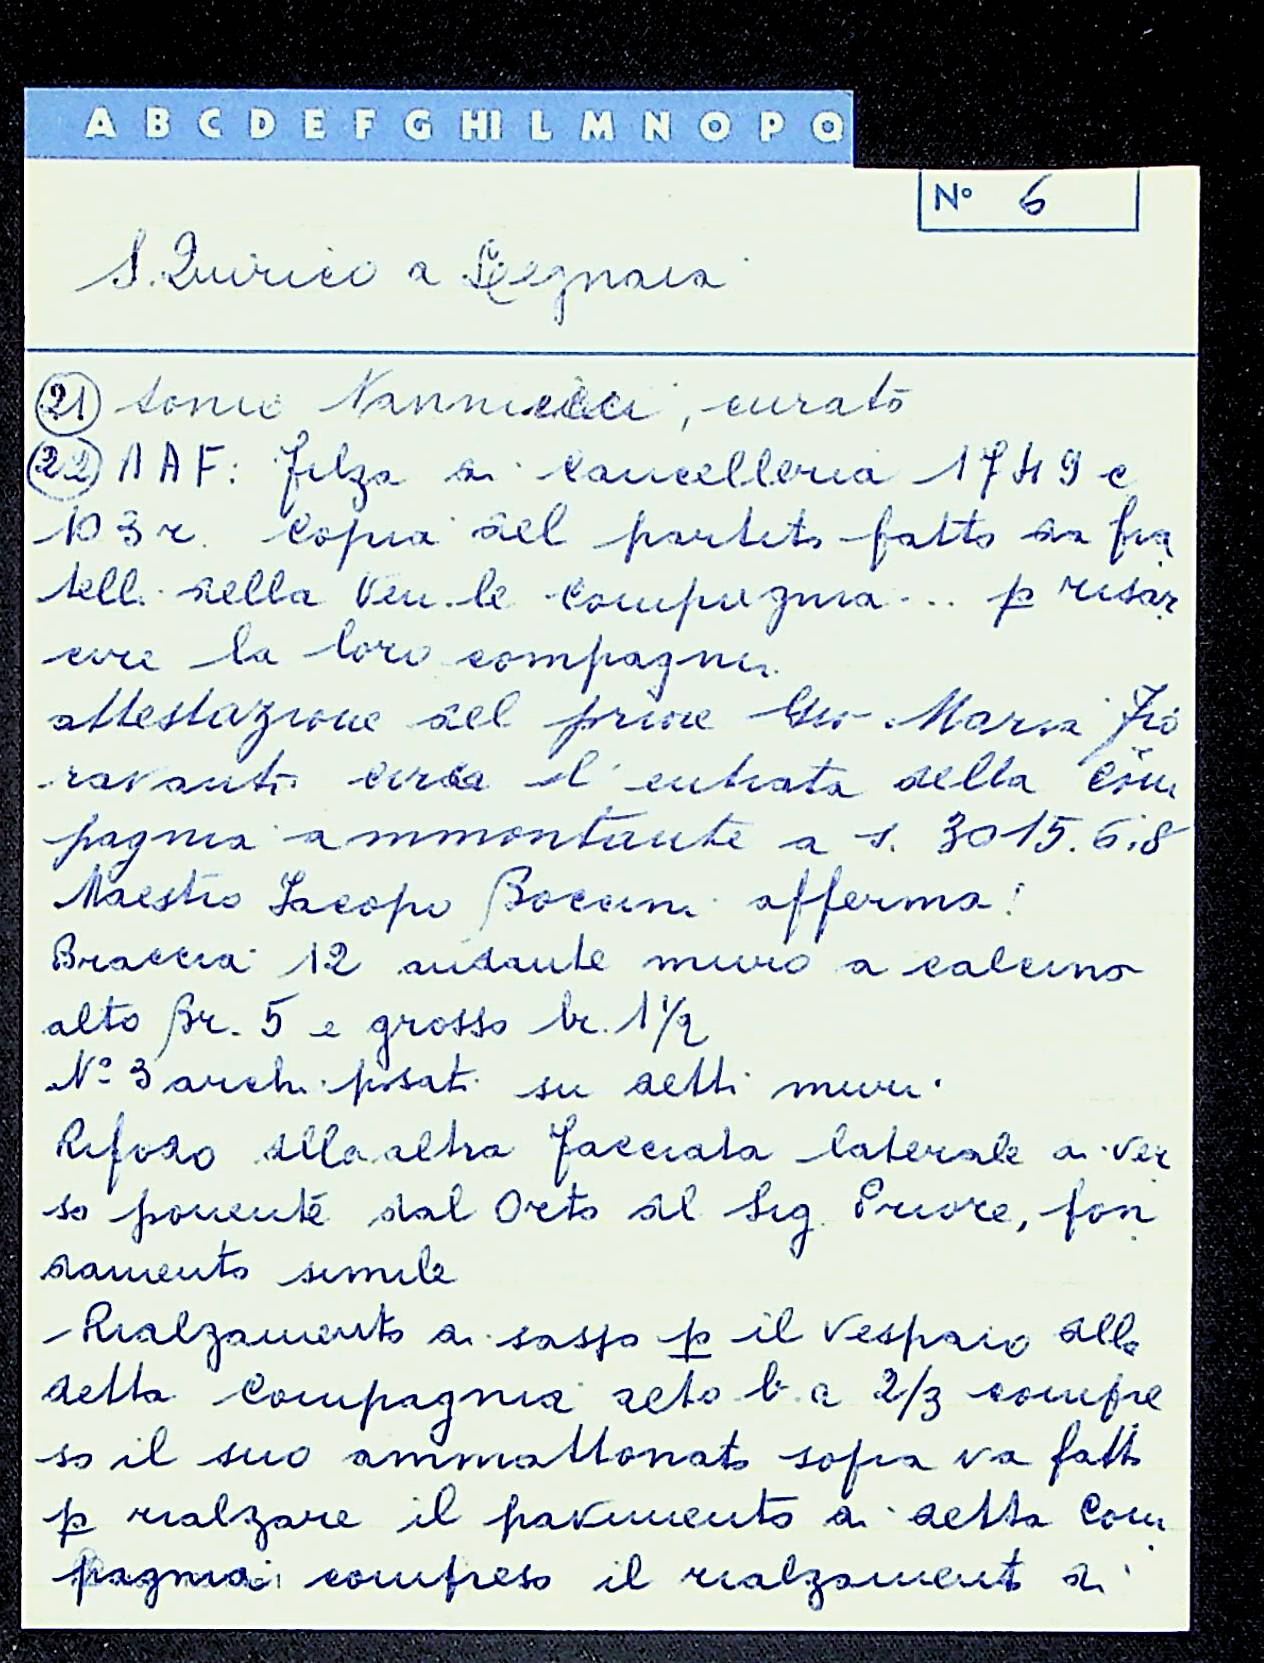 A B C D E F G HI L M N O P Q
N° 6
S. Quirico a Legnaia
21 tonio Nannucci, curato
22 AAF: Filza di Cancelleria 1749 c
103r. Copia del partito fatto da fra
telli della Ven.le Compagnia... p risar
cire la loro compagnia.
attestazione del priore Gio Maria Fio
ravanti circa l'entrata della com
pagnia ammontante a s. 3015.6.8
Maestro Jacopo Boccini afferma:
Braccia 12 andante muro a calcina
alto Br. 5 e grosso br. 1 1/2
N° 3 archi posati su detti muri.
Rifodo alla altra facciata laterale di ver
so ponente dal Orto del Sig. Priore, fon
damento simile
Rialzamento di sasso p il vespaio alla
detta Compagnia alto b.a 2/3 compre
so il suo ammattonato sopra va fatto
p rialzare il pavimento di detta Com
pagnia: compreso il rialzament di